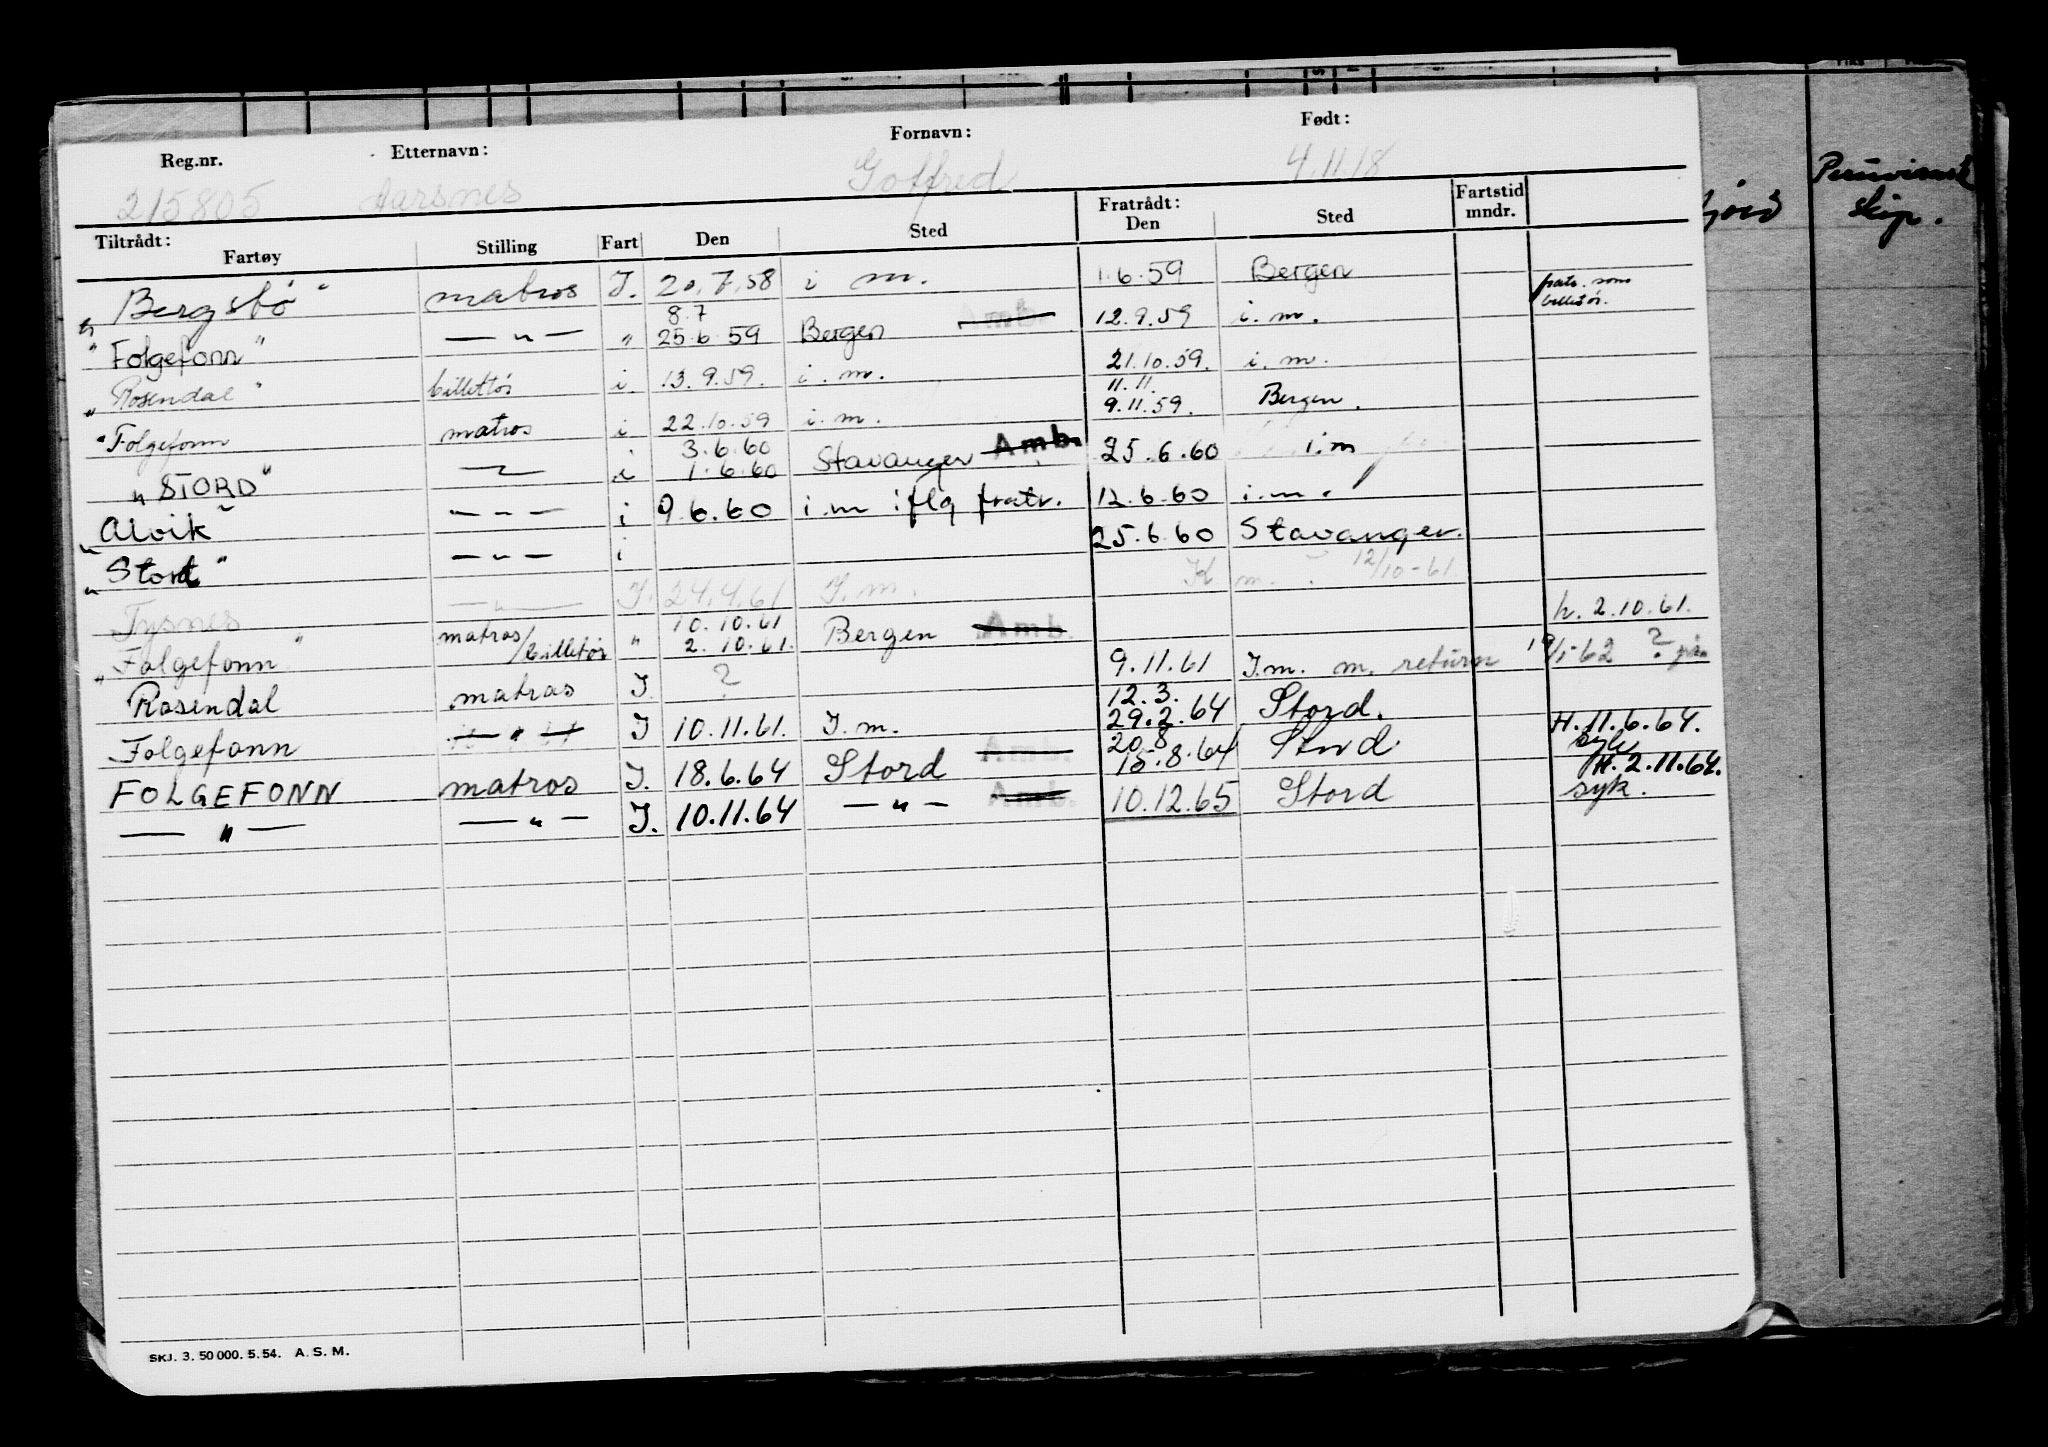 Reg.nr. Etternavn: Fornavn: Født:
215805 Aarsnes Goffred 4.11.18
Tiltrådt: Fratrådt: Fartstid
Fartøy Stilling Fart Den Sted Den Sted mndr.
"Bergsbø" matros I. 20.7.58 i m. 1.6.59 Bergen
8.7 fratr. som
"Folgefonn" — " — " 25.6.59 Bergen Amb. 12.9.59 i.m. billettør.
"Rosendal" billettør i 13.9.59. i.m. 21.10.59. i.m.
11.11.
"Folgefonn matros i 22.10.59 i.m. 9.11.59. Bergen.
3.6.60
"STORD" — " — i 1.6.60 Stavanger Amb. 25.6.60 i.m
"Alvik" — " — i 9.6.60 i.m iflg fratr. 12.6.60 i.m.
"Stord" — " — i 25.6.60 Stavanger.
Tysnes — " — I. 24.4.61 I.m. K m. 12/10-61
10.10.61
"Folgefonn" matros/billettør " 2.10.61. Bergen Amb. h. 2.10.61.
Rosendal matros I. ? 9.11.61 I.m. m. retur 19/5-62 ?
12.3.
Folgefonn — " — I 10.11.61. I.m. 29.2.64 Stord.
20.8 H.11.6.64.
FOLGEFONN matros I. 18.6.64 Stord Amb. 15.8.64 Stord syk
H.2.11.64.
— " — — " — I. 10.11.64 — " — Amb. 10.12.65 Stord syk.
SKJ. 3. 50 000. 5. 54. A. S. M.
Peruviansk
skip.